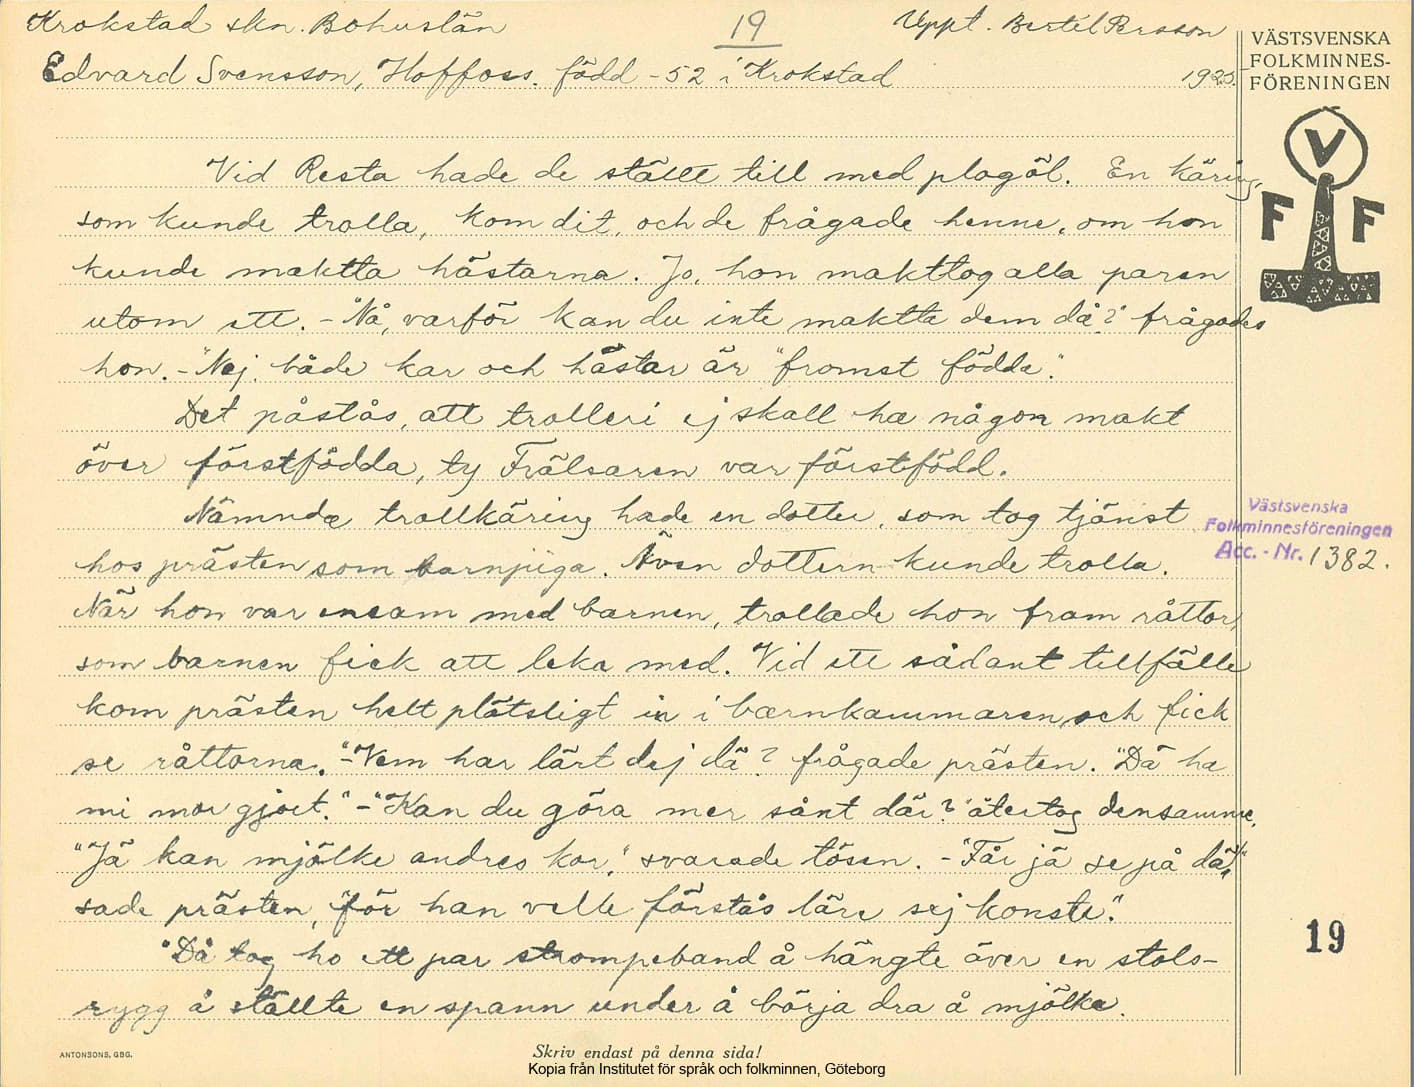 Krokstad skn. Bohuslän
19
Uppt. Bertil Persson
Edvard Svensson, Hoffoss. född -52 i Krokstad
1925.
VÄSTSVENSKA
FOLKMINNES-
FÖRENINGEN
V
F F
Vid Resta hade de ställt till med plogöl. En käring,
som kunde trolla, kom dit, och de frågade henne, om hon
kunde maktta hästarna. Jo, hon makttog alla paren
utom ett. - "Nå, varför kan du inte maktta dem då?" frågades
hon. - "Nej, både kar och hästar är "fromst födda".
Det påstås, att trolleri ej skall ha någon makt
över förstfödda, ty Frälsaren var förstfödd.
Nämnda trollkäring hade en dotter, som tog tjänst
hos prästen som barnpiga. Även dottern kunde trolla.
När hon var ensam med barnen, trollade hon fram råttor,
som barnen fick att leka med. Vid ett sådant tillfälle
kom prästen helt plötsligt in i barnkammaren, och fick
se råttorna. - "Vem har lärt dej dä? frågade prästen. "Dä ha
mi mor gjort." - "Kan du göra mer sånt där?" återtog densamme.
"Jä kan mjölke andres kor," svarade tösen. - "Får jä se på dä,"
sade prästen, "för han velle förstås läre sej konste."
"Då tog ho ett par strompeband å hängte över en stols-
rygg å ställte en spann under å börja dra å mjölka.
Västsvenska
Folkminnesföreningen
Acc. - Nr. 1382.
19
ANTONSONS, GBG.
Skriv endast på denna sida!
Kopia från Institutet för språk och folkminnen, Göteborg